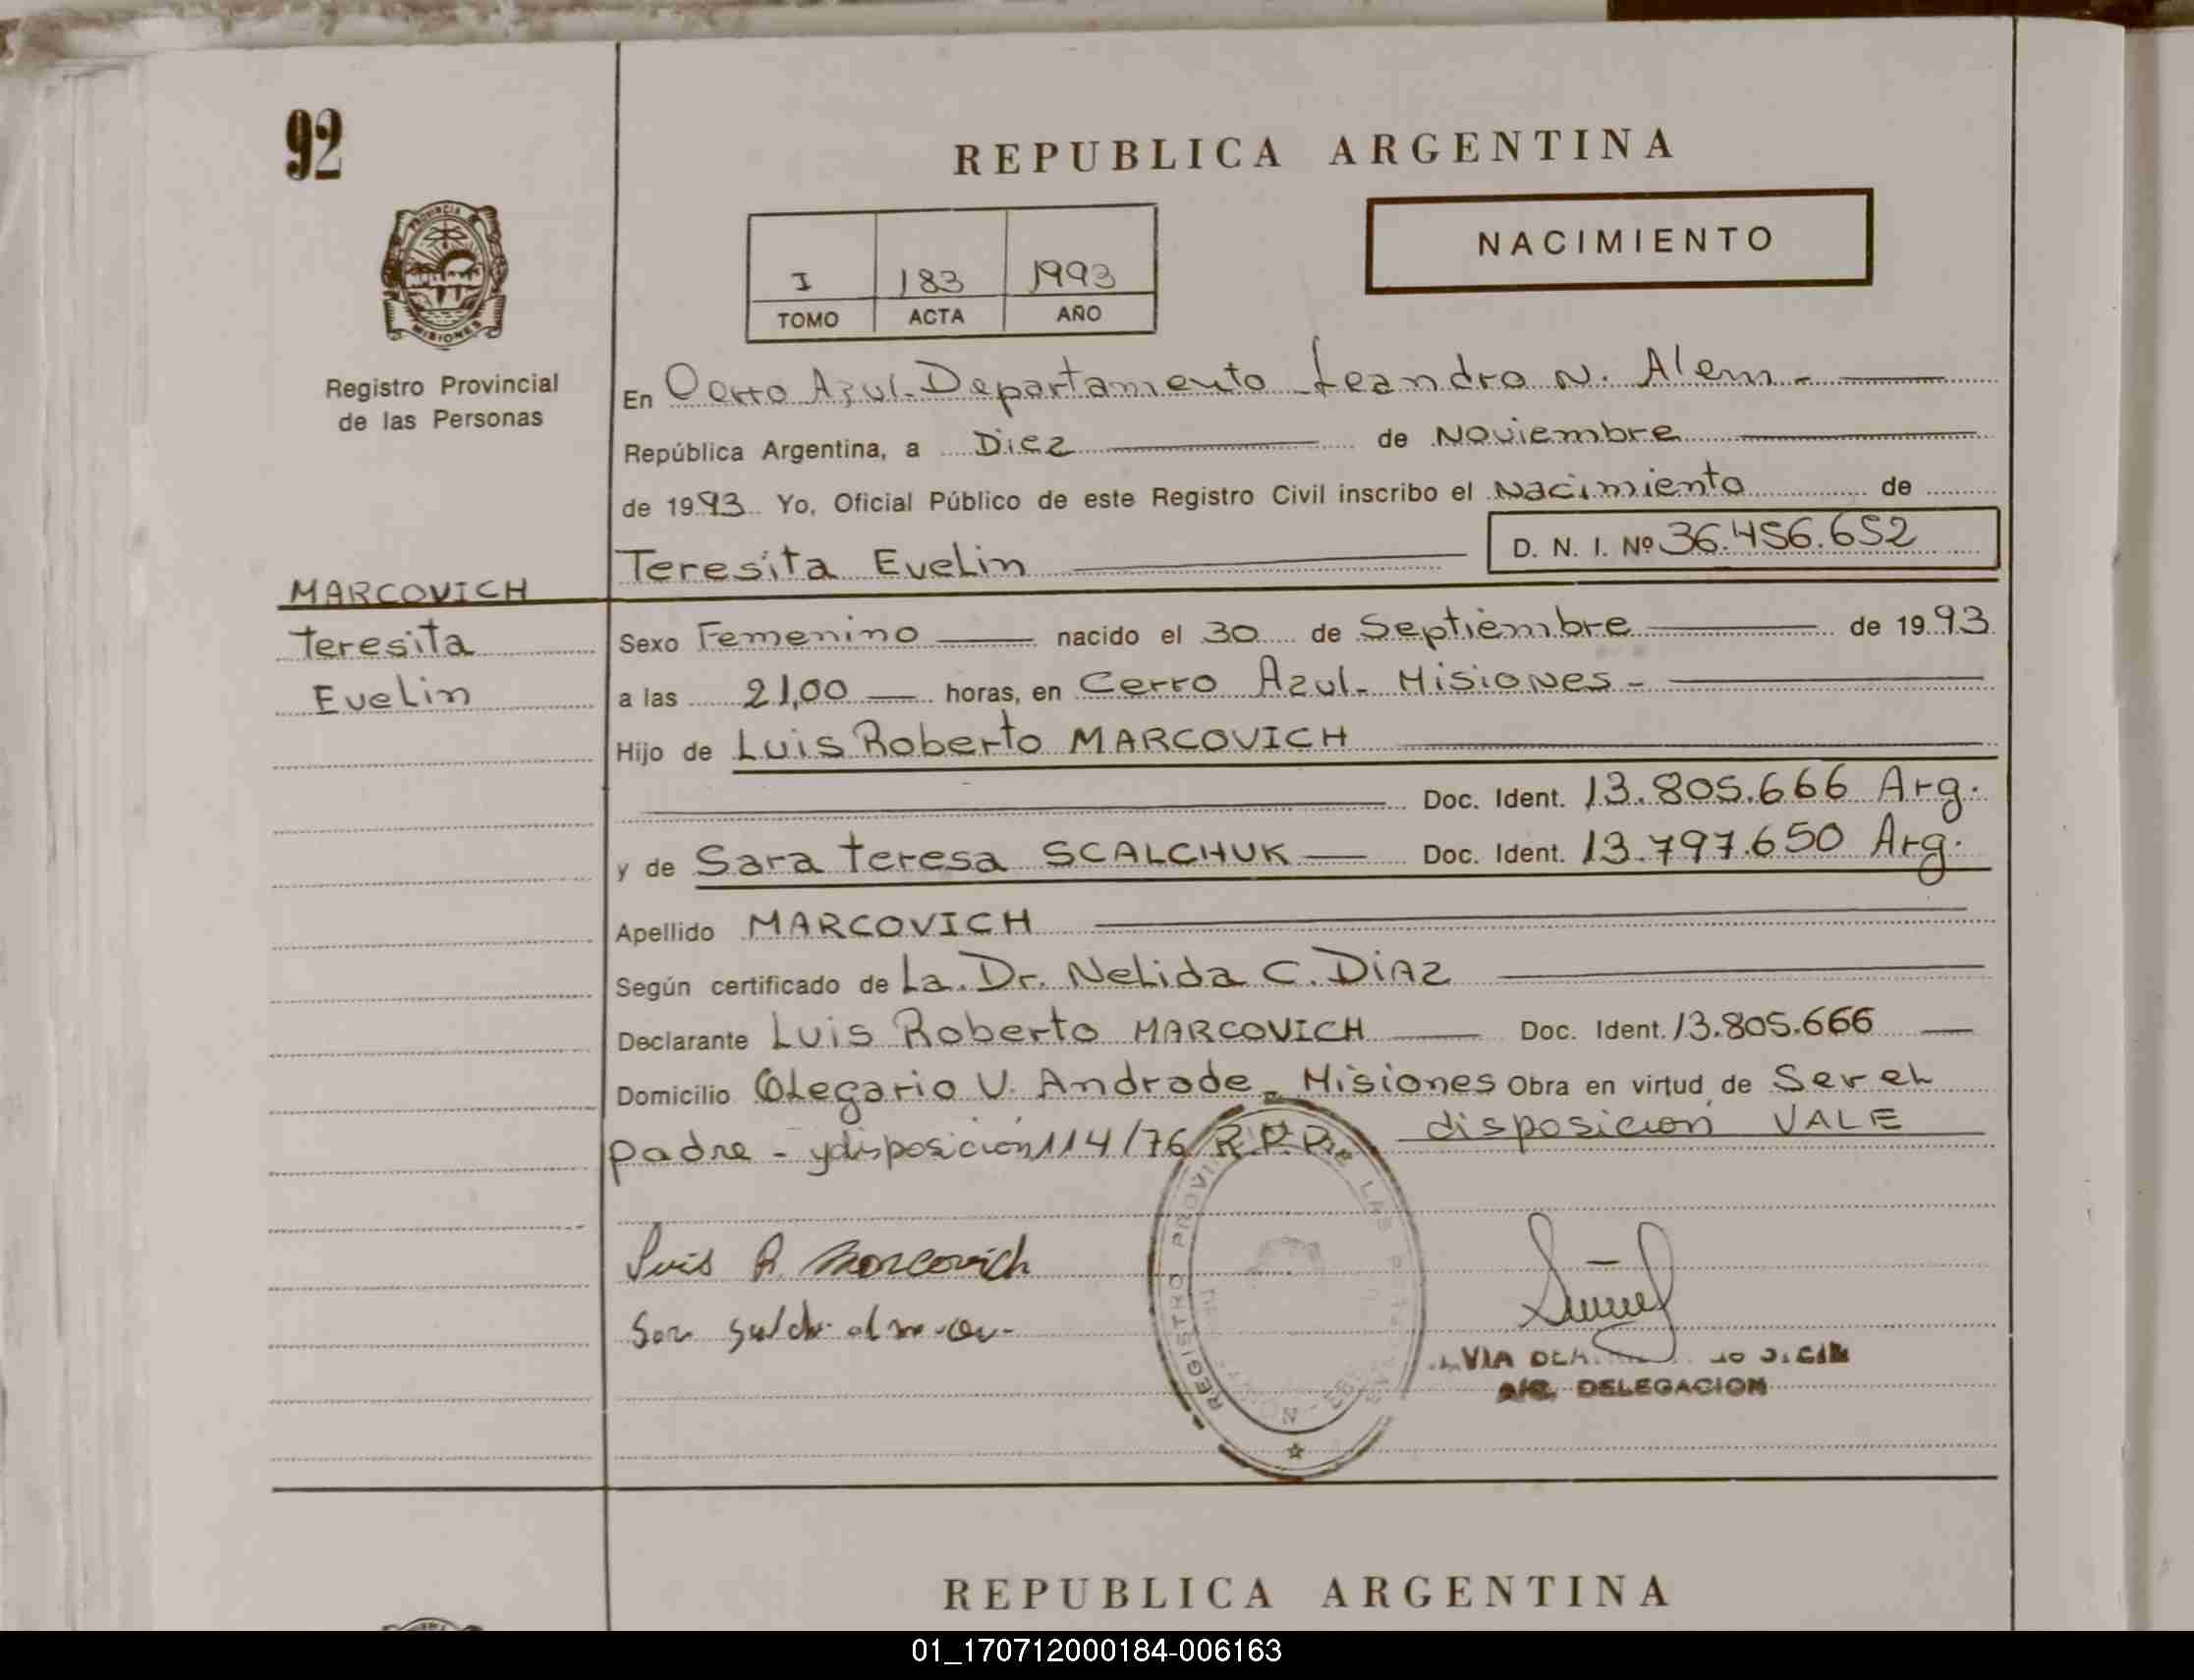 92
REPUBLICA ARGENTINA
PROVINCIA
MISIONES
Registro Provincial
de las Personas
I 183 1993
TOMO ACTA AÑO
NACIMIENTO
En Cerro Azul. Departamento Leandro N. Alem -
República Argentina, a Diez de Noviembre
de 1993 Yo, Oficial Público de este Registro Civil inscribo el Nacimiento de
Teresita Evelin D. N. I. Nº 36.456.652
MARCOVICH
Teresita
Evelin
Sexo Femenino nacido el 30 de Septiembre de 1993
a las 21,00 horas, en Cerro Azul - Misiones -
Hijo de Luis Roberto MARCOVICH
Doc. Ident. 13.805.666 Arg.
y de Sara Teresa SCALCHUK Doc. Ident. 13.797.650 Arg.
Apellido MARCOVICH
Según certificado de La. Dr. Nelida C. Diaz
Declarante Luis Roberto MARCOVICH Doc. Ident. 13.805.666
Domicilio Olegario V. Andrade - Misiones Obra en virtud de Ser el
padre - y disposición 114/76 R.P.P. disposición VALE
REGISTRO PROVINCIAL DE LAS
Luis R. Marcovich
A/C. DELEGACION
REPUBLICA ARGENTINA
01_170712000184-006163